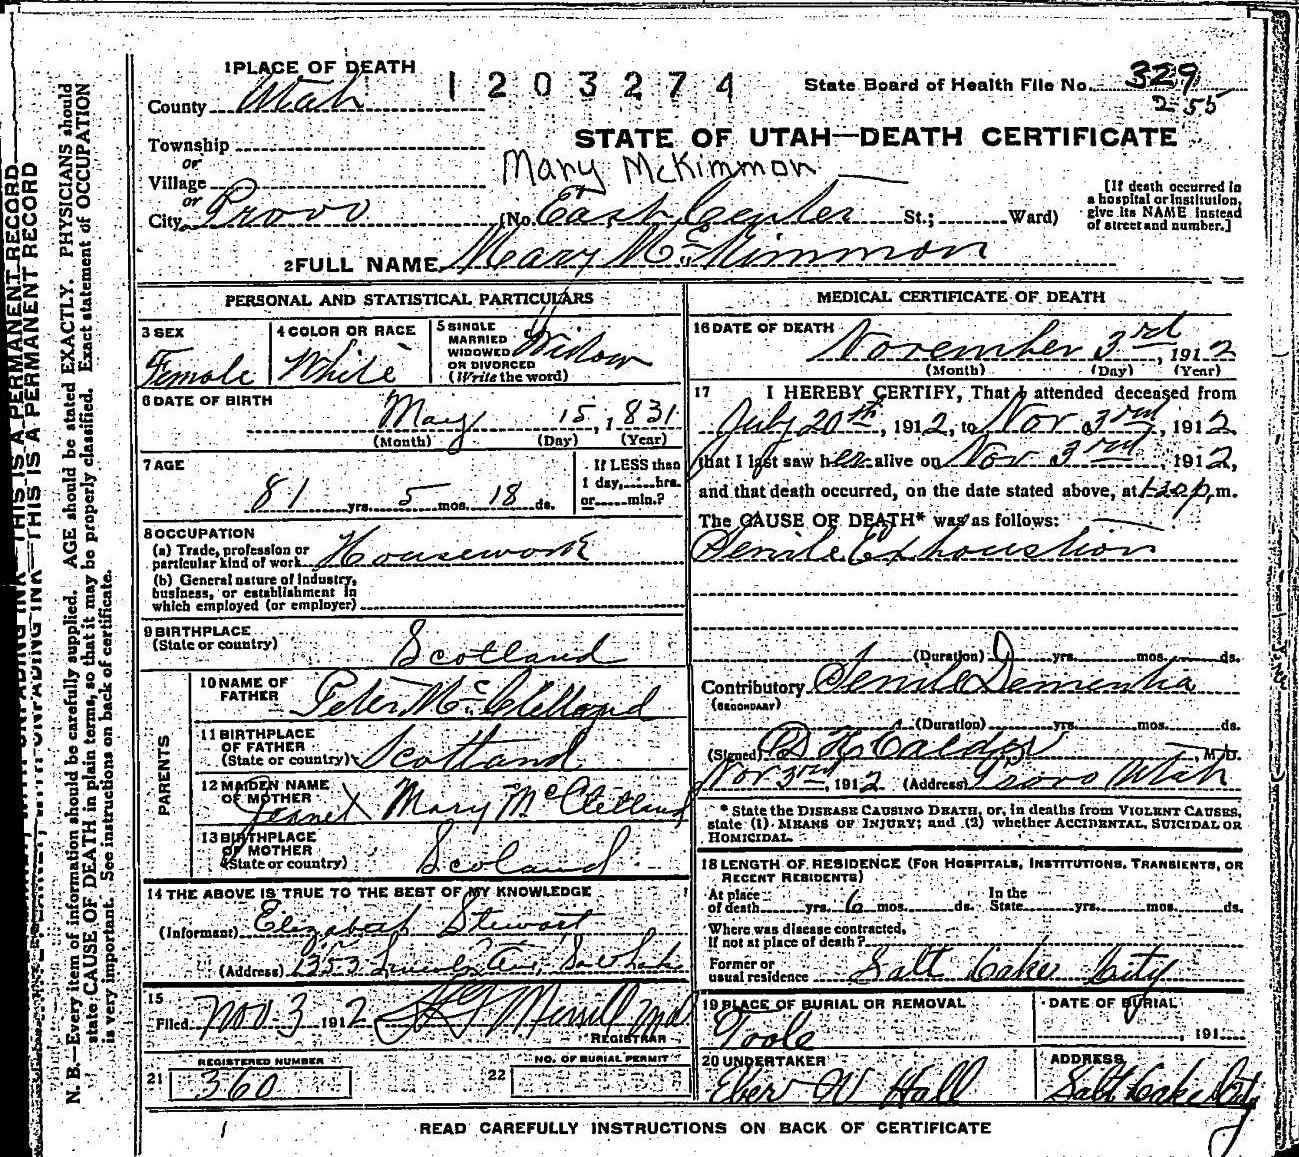 1 PLACE OF DEATH
1203274
State Board of Health File No. 329
2 55
County Utah
STATE OF UTAH—DEATH CERTIFICATE
Township
or
Village
Mary McKimmon
or
City Provo (No. East Center St.; Ward)
[If death occurred in
a hospital or institution,
give its NAME instead
of street and number.]
2 FULL NAME Mary McKimmon
PERSONAL AND STATISTICAL PARTICULARS
3 SEX
Female
4 COLOR OR RACE
White
5 SINGLE
MARRIED
WIDOWED
OR DIVORCED
(Write the word)
Widow
6 DATE OF BIRTH
May 15, 1831
(Month) (Day) (Year)
7 AGE
81 yrs. 5 mos. 18 ds.
If LESS than
1 day, hrs.
or min.?
8 OCCUPATION
(a) Trade, profession or
particular kind of work Housework
(b) General nature of Industry,
business, or establishment in
which employed (or employer)
9 BIRTHPLACE
(State or country) Scotland
PARENTS
10 NAME OF
FATHER Peter McClelland
11 BIRTHPLACE
OF FATHER
(State or country) Scotland
12 MAIDEN NAME
OF MOTHER
Jeanet X Mary McClelland
13 BIRTHPLACE
OF MOTHER
(State or country) Scoland
14 THE ABOVE IS TRUE TO THE BEST OF MY KNOWLEDGE
(Informant) Elizabah Stewart
(Address) 1353
15
Filed Nov. 3 1912 Merrill md
REGISTRAR
REGISTERED NUMBER
21 360
NO. OF BURIAL PERMIT
22
MEDICAL CERTIFICATE OF DEATH
16 DATE OF DEATH
November 3rd, 1912
(Month) (Day) (Year)
17 I HEREBY CERTIFY, That I attended deceased from
July 20th, 1912, to Nov 3rd, 1912.
that I last saw her alive on Nov 3rd, 1912,
and that death occurred, on the date stated above, at 1-20 p. m.
The CAUSE OF DEATH* was as follows:
Senile Exhoustion
(Duration) yrs. mos. ds.
Contributory Senile Dementia
(SECONDARY)
(Duration) yrs. mos. ds.
(Signed) H Calder, M. D.
Nov 3rd, 1912 (Address) Provo Utah
* State the DISEASE CAUSING DEATH, or, in deaths from VIOLENT CAUSES,
state (1) MEANS OF INJURY; and (2) whether ACCIDENTAL, SUICIDAL OR
HOMICIDAL.
18 LENGTH OF RESIDENCE (FOR HOSPITALS, INSTITUTIONS, TRANSIENTS, OR
RECENT RESIDENTS)
At place
of death yrs. 6 mos. ds.
In the
State yrs. mos. ds.
Where was disease contracted,
If not at place of death?
Former or
usual residence Salt Laker City
19 PLACE OF BURIAL OR REMOVAL
Toole
DATE OF BURIAL
, 191
20 UNDERTAKER
Eber W Hall
ADDRESS
Salt Lake City
READ CAREFULLY INSTRUCTIONS ON BACK OF CERTIFICATE
THIS IS A PERMANENT RECORD
N. B.—Every item of information should be carefully supplied. AGE should be stated EXACTLY. PHYSICIANS should
state CAUSE OF DEATH in plain terms, so that it may be properly classified. Exact statement of OCCUPATION
is very important. See instructions on back of certificate.